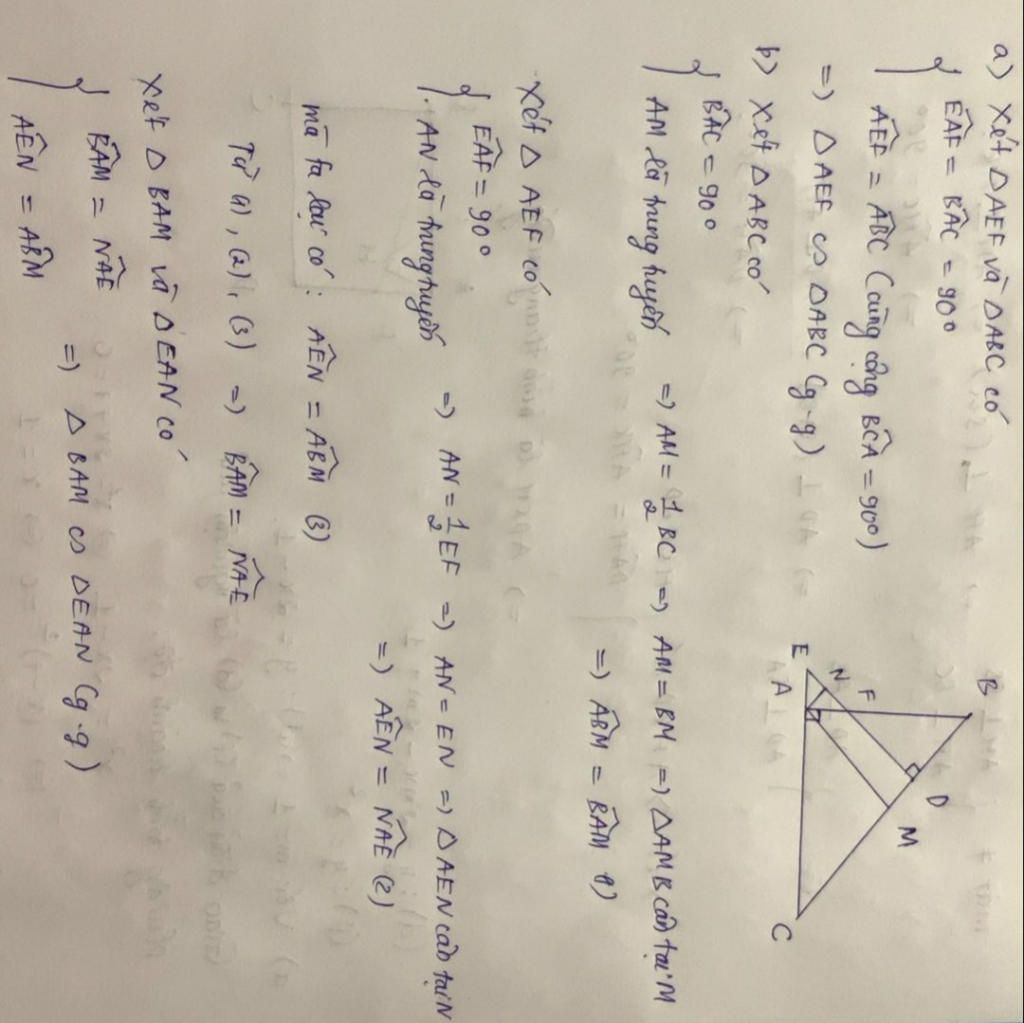 a) Xét ΔAEF và ΔABC có
{ EÂF = BÂC = 90°
AÊF = AB̂C (cùng cộng BĈA = 90°)
=) ΔAEF ∽ ΔABC (g.g)
b) Xét ΔABC có
{ BÂC = 90°
AM là trung tuyến => AM = 1/2 BC => AM = BM => ΔAMB cân tại M
=) AB̂M = BÂM (1)
Xét Δ AEF có
{ EÂF = 90°
AN là trung tuyến => AN = 1/2 EF => AN = EN => ΔAEN cân tại N
=) AÊN = NÂE (2)
mà ta lại có: AÊN = AB̂M (3)
Từ (1), (2), (3) =) BÂM = NÂE
Xét Δ BAM và ΔEAN có
{ BÂM = NÂE
AÊN = AB̂M
=) Δ BAM ∽ ΔEAN (g.g)
B
D
M
F
N
E
A
C